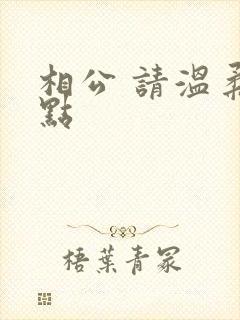 相公 請溫柔
點
梧葉青冢